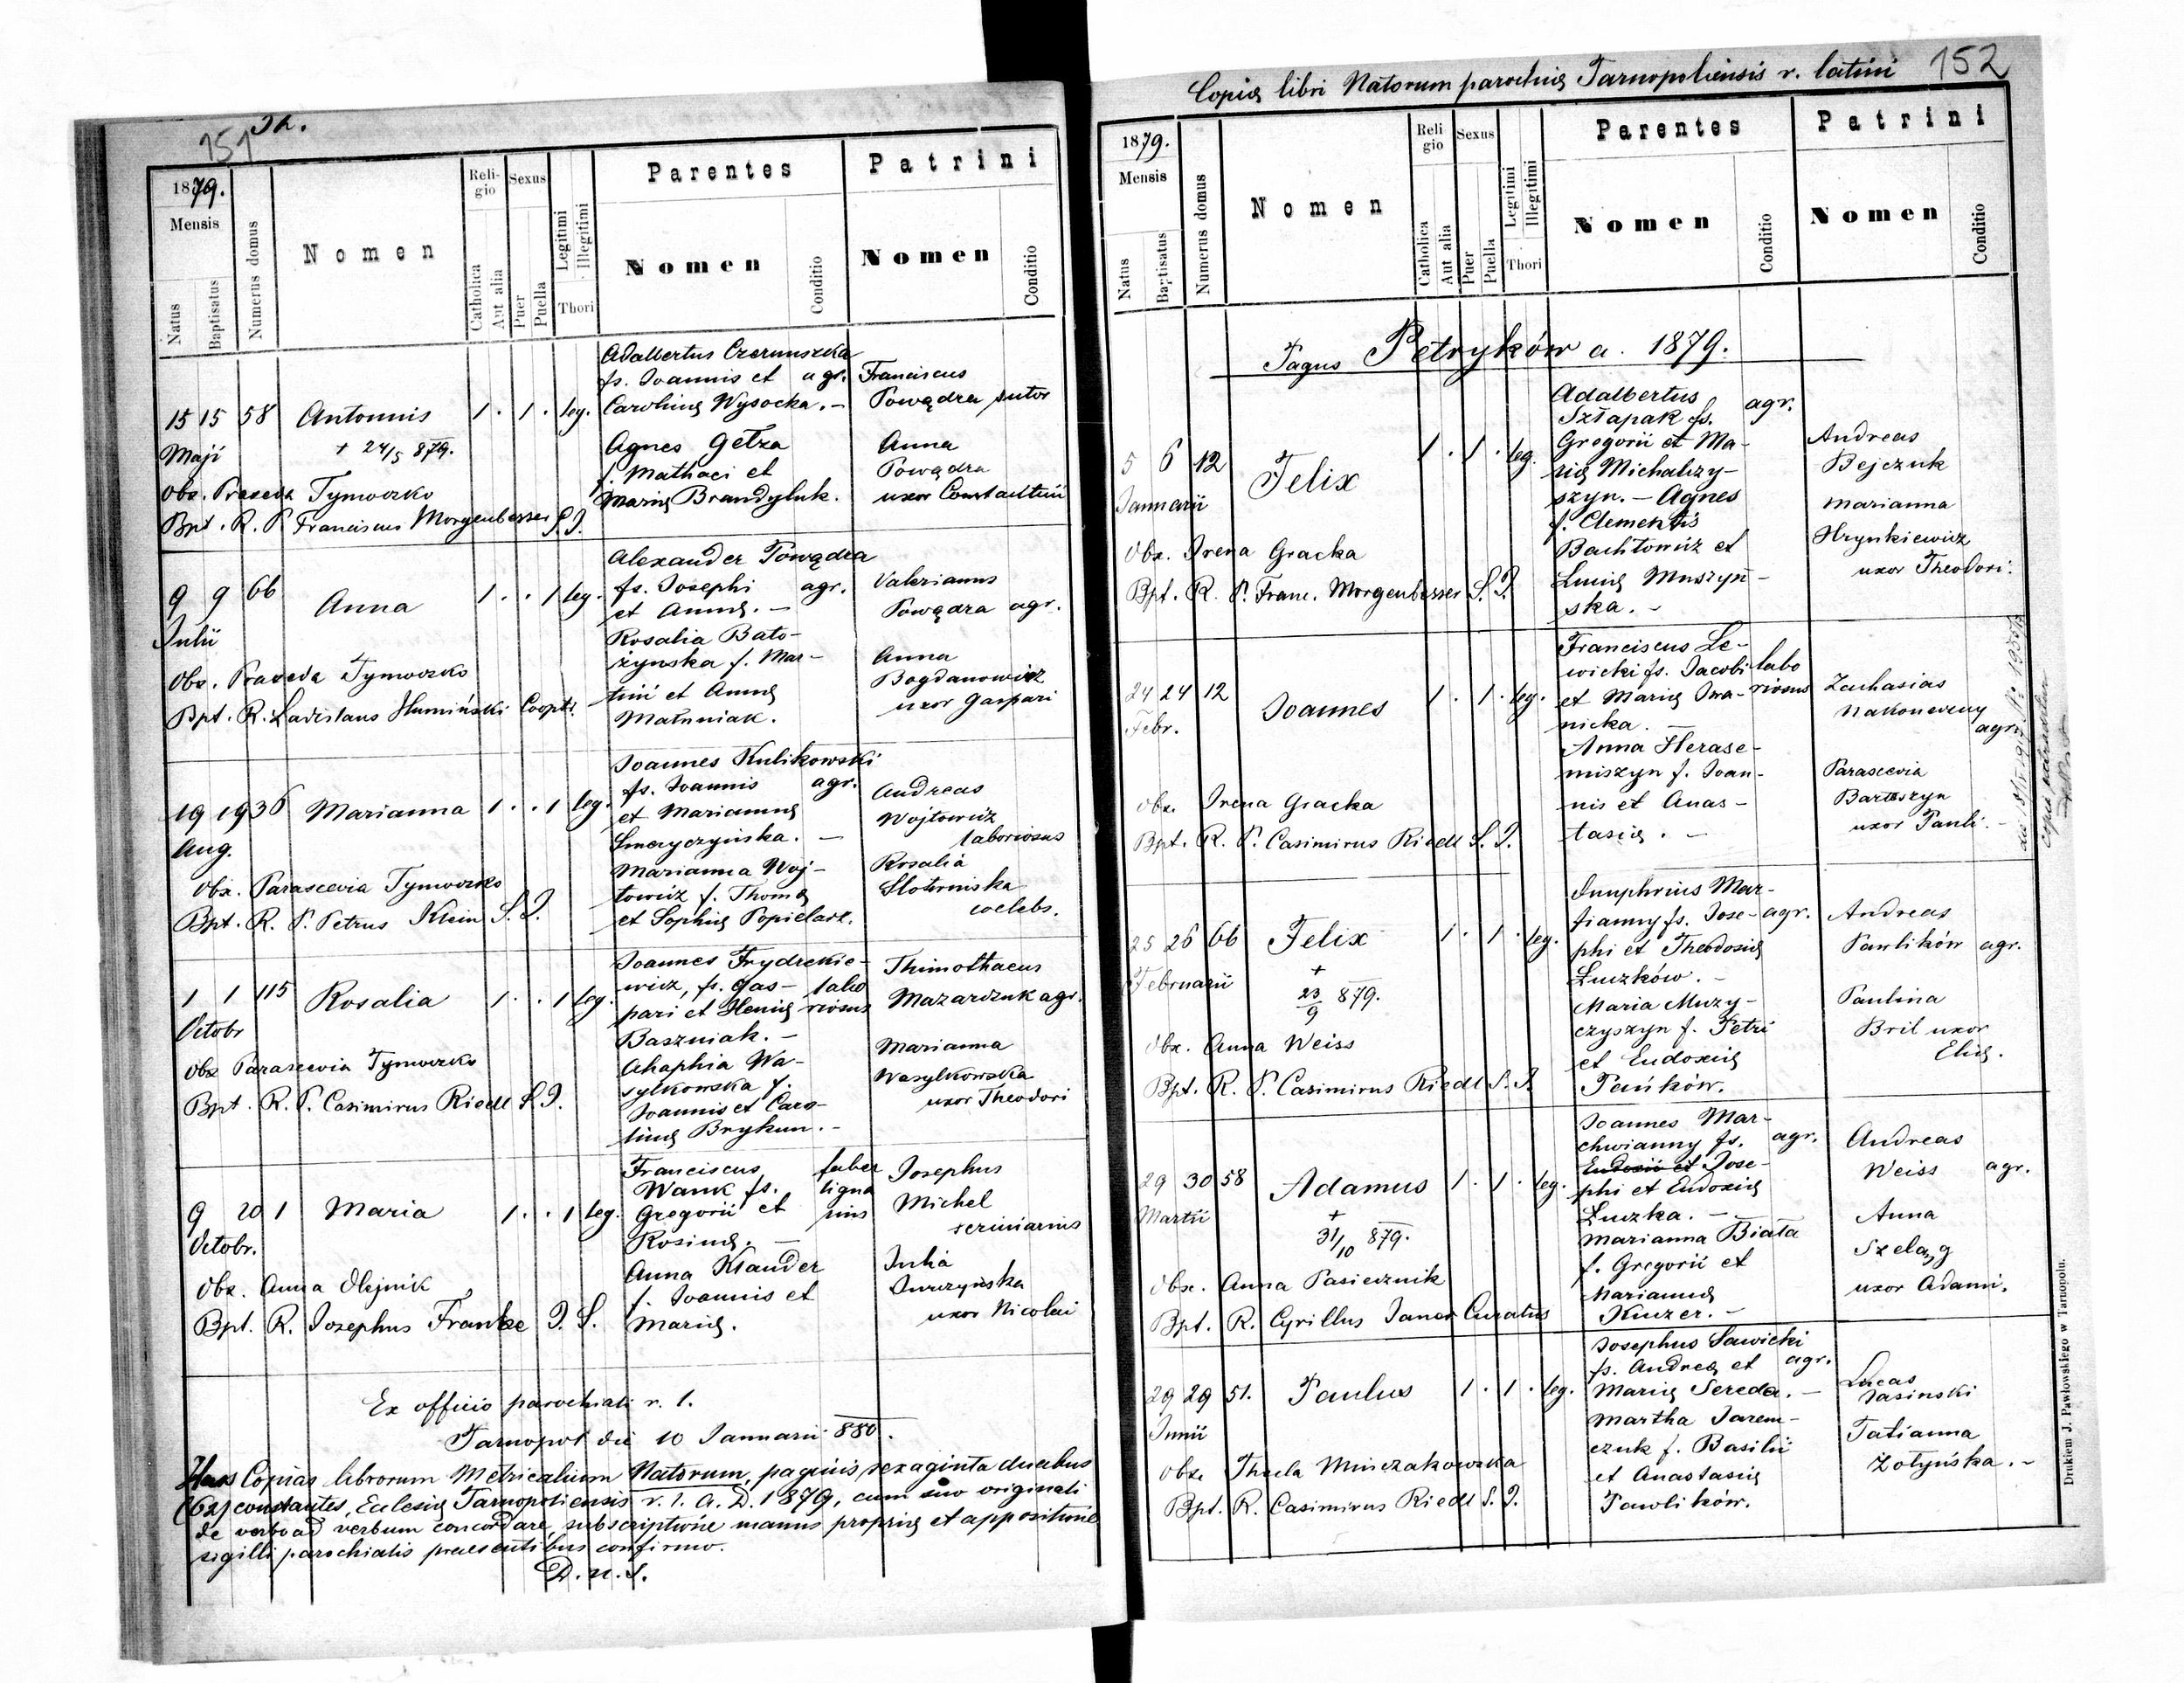 151
1879.
Mensis
Natus
Baptisatus
Numerus domus
Nomen
Religio
Catholica
Aut alia
Sexus
Puer
Puella
Legitimi
Illegitimi
Thori
Parentes
Nomen
Conditio
Patrini
Nomen
Conditio
15 15 58 Antonius 1. 1. leg.
Maji
+ 24/5 879.
Obx. Praxeda Tymoczko
Bpt. R. P. Franciscus Morgenbesser S.J.
Adalbertus Czerunszka
fs. Joannis et agr.
Carolinę Wysocka. -
Agnes Getza
f. Mathaei et
Marię Brandyluk.
Franciscus
Powądra sutor
Anna
Powądra
uxor Constantini
9 9 66 Anna 1. . 1 leg.
Julii
Obx. Praxeda Tymoczko
Bpt. R. Ladislaus Humiński Coopt.
Alexander Powądra
fs. Josephi agr.
et Annę. -
Rosalia Bato-
żynska f. Mar-
tini et Annę
Matuniak.
Valerianus
Powądra agr.
Anna
Bogdanowicz
uxor Gaspari
19 19 36 Marianna 1. . 1 leg.
Aug.
Obx. Parascevia Tymoczko
Bpt. R. P. Petrus Klein S.J.
Joannes Kulikowski
fs. Joannis agr.
et Mariannę
Smeryczyńska. -
Marianna Woj-
towicz f. Thomę
et Sophię Popielarz.
Andreas
Wojtowicz
laboriosus
Rosalia
Slotwinska
coelebs.
1 1 115 Rosalia 1. . 1 leg.
Octobr
Obx Parascevia Tymoczko
Bpt. R. P. Casimirus Riedl S.J.
Joannes Frydrekie-
wicz, fs. Gas- labo
pari et Henię riosus
Baszniak. -
Ahaphia Wa-
sylkowska f.
Joannis et Caro-
linę Brykun. -
Thimothaeus
Mazarczuk agr.
Marianna
Wasylkowska
uxor Theodori
9 20 1 Maria 1. . 1 leg.
Octobr.
Obx. Anna Olejnik
Bpt. R. Josephus Franke J. S.
Franciscus faber
Wank fs. ligna
Gregorii et rius
Rosinę. -
Anna Klander
f. Joannis et
Marię.
Josephus
Michel
scriniarius
Julia
Jurczyńska
uxor Nicolai
Ex officio parochiali r. l.
Tarnopol die 10 Januarii 880.
Has Copias librorum Metricalium Natorum, paginis sexaginta duabus
(62) constantes, Eclesię Tarnopoliensis r. l. A. D. 1879, cum suo originali
de verbo ad verbum concordare, subscriptione manus proprię et appositione
sigilli parochialis praesentibus confirmo.
D. u. S.
Copia libri Natorum parochię Tarnopoliensis r. latini 152
1879.
Mensis
Natus
Baptisatus
Numerus domus
Nomen
Religio
Catholica
Aut alia
Sexus
Puer
Puella
Legitimi
Illegitimi
Thori
Parentes
Nomen
Conditio
Patrini
Nomen
Conditio
Pagus Petryków a. 1879.
5 6 12 Felix 1. 1. leg.
Januarii
Obx. Irena Gracka
Bpt. R. P. Franc. Morgenbesser S.J.
Adalbertus agr.
Szłapak fs.
Gregorii et Ma-
rię Michalczy-
szyn. - Agnes
f. Clementis
Bachtowicz et
Lucię Muszyń-
ska. -
Andreas
Bejczuk
Marianna
Hrynkiewicz
uxor Theodori.
24 24 12 Joannes 1. 1. leg.
Febr.
Obx. Irena Gracka
Bpt. R. P. Casimirus Riedl S.J.
Franciscus Le-
wicki fs. Jacobi labo
et Marię Iwa- riosus
nicka. -
Anna Herase-
miszyn f. Joan-
nis et Anas-
tasię. -
Zacharias
Nakoneczny
agr.
Parascevia
Bartoszyn
uxor Pauli. -
25 26 66 Felix 1. 1. leg.
Februarii
+
23/9 879.
Obx. Anna Weiss
Bpt. R. P. Casimirus Riedl S.J.
Onuphrius Mar-
fianny fs. Jose- agr.
phi et Theodosię
Łuczków. -
Maria Muzy-
czyszyn f. Petri
et Eudoxię
Pańków.
Andreas
Pawlików agr.
Paulina
Bril uxor
Elię.
29 30 58 Adamus 1. 1. leg.
Martii
+
31/10 879.
Obx. Anna Pasiecznik
Bpt. R. Cyrillus Janer Curatus
Joannes Mar-
chwianny fs. agr.
Eudoxii et Jose-
phi et Eudoxię
Łuczka. -
Marianna Biała
f. Gregorii et
Mariannę
Kuzer. -
Andreas
Weiss agr.
Anna
Szeląg
uxor Adami.
29 29 51. Paulus 1. 1. leg.
Junii
Obx. Thecla Minczakowska
Bpt. R. Casimirus Riedl S.J.
Josephus Sawicki
fs. Andreę et agr.
Marię Sereda. -
Martha Jarem-
czuk f. Basilii
et Anastasię
Pawlików.
Lucas
Jasinski
Tatianna
Zołyńska. -
Drukiem J. Pawłowskiego w Tarnopolu.